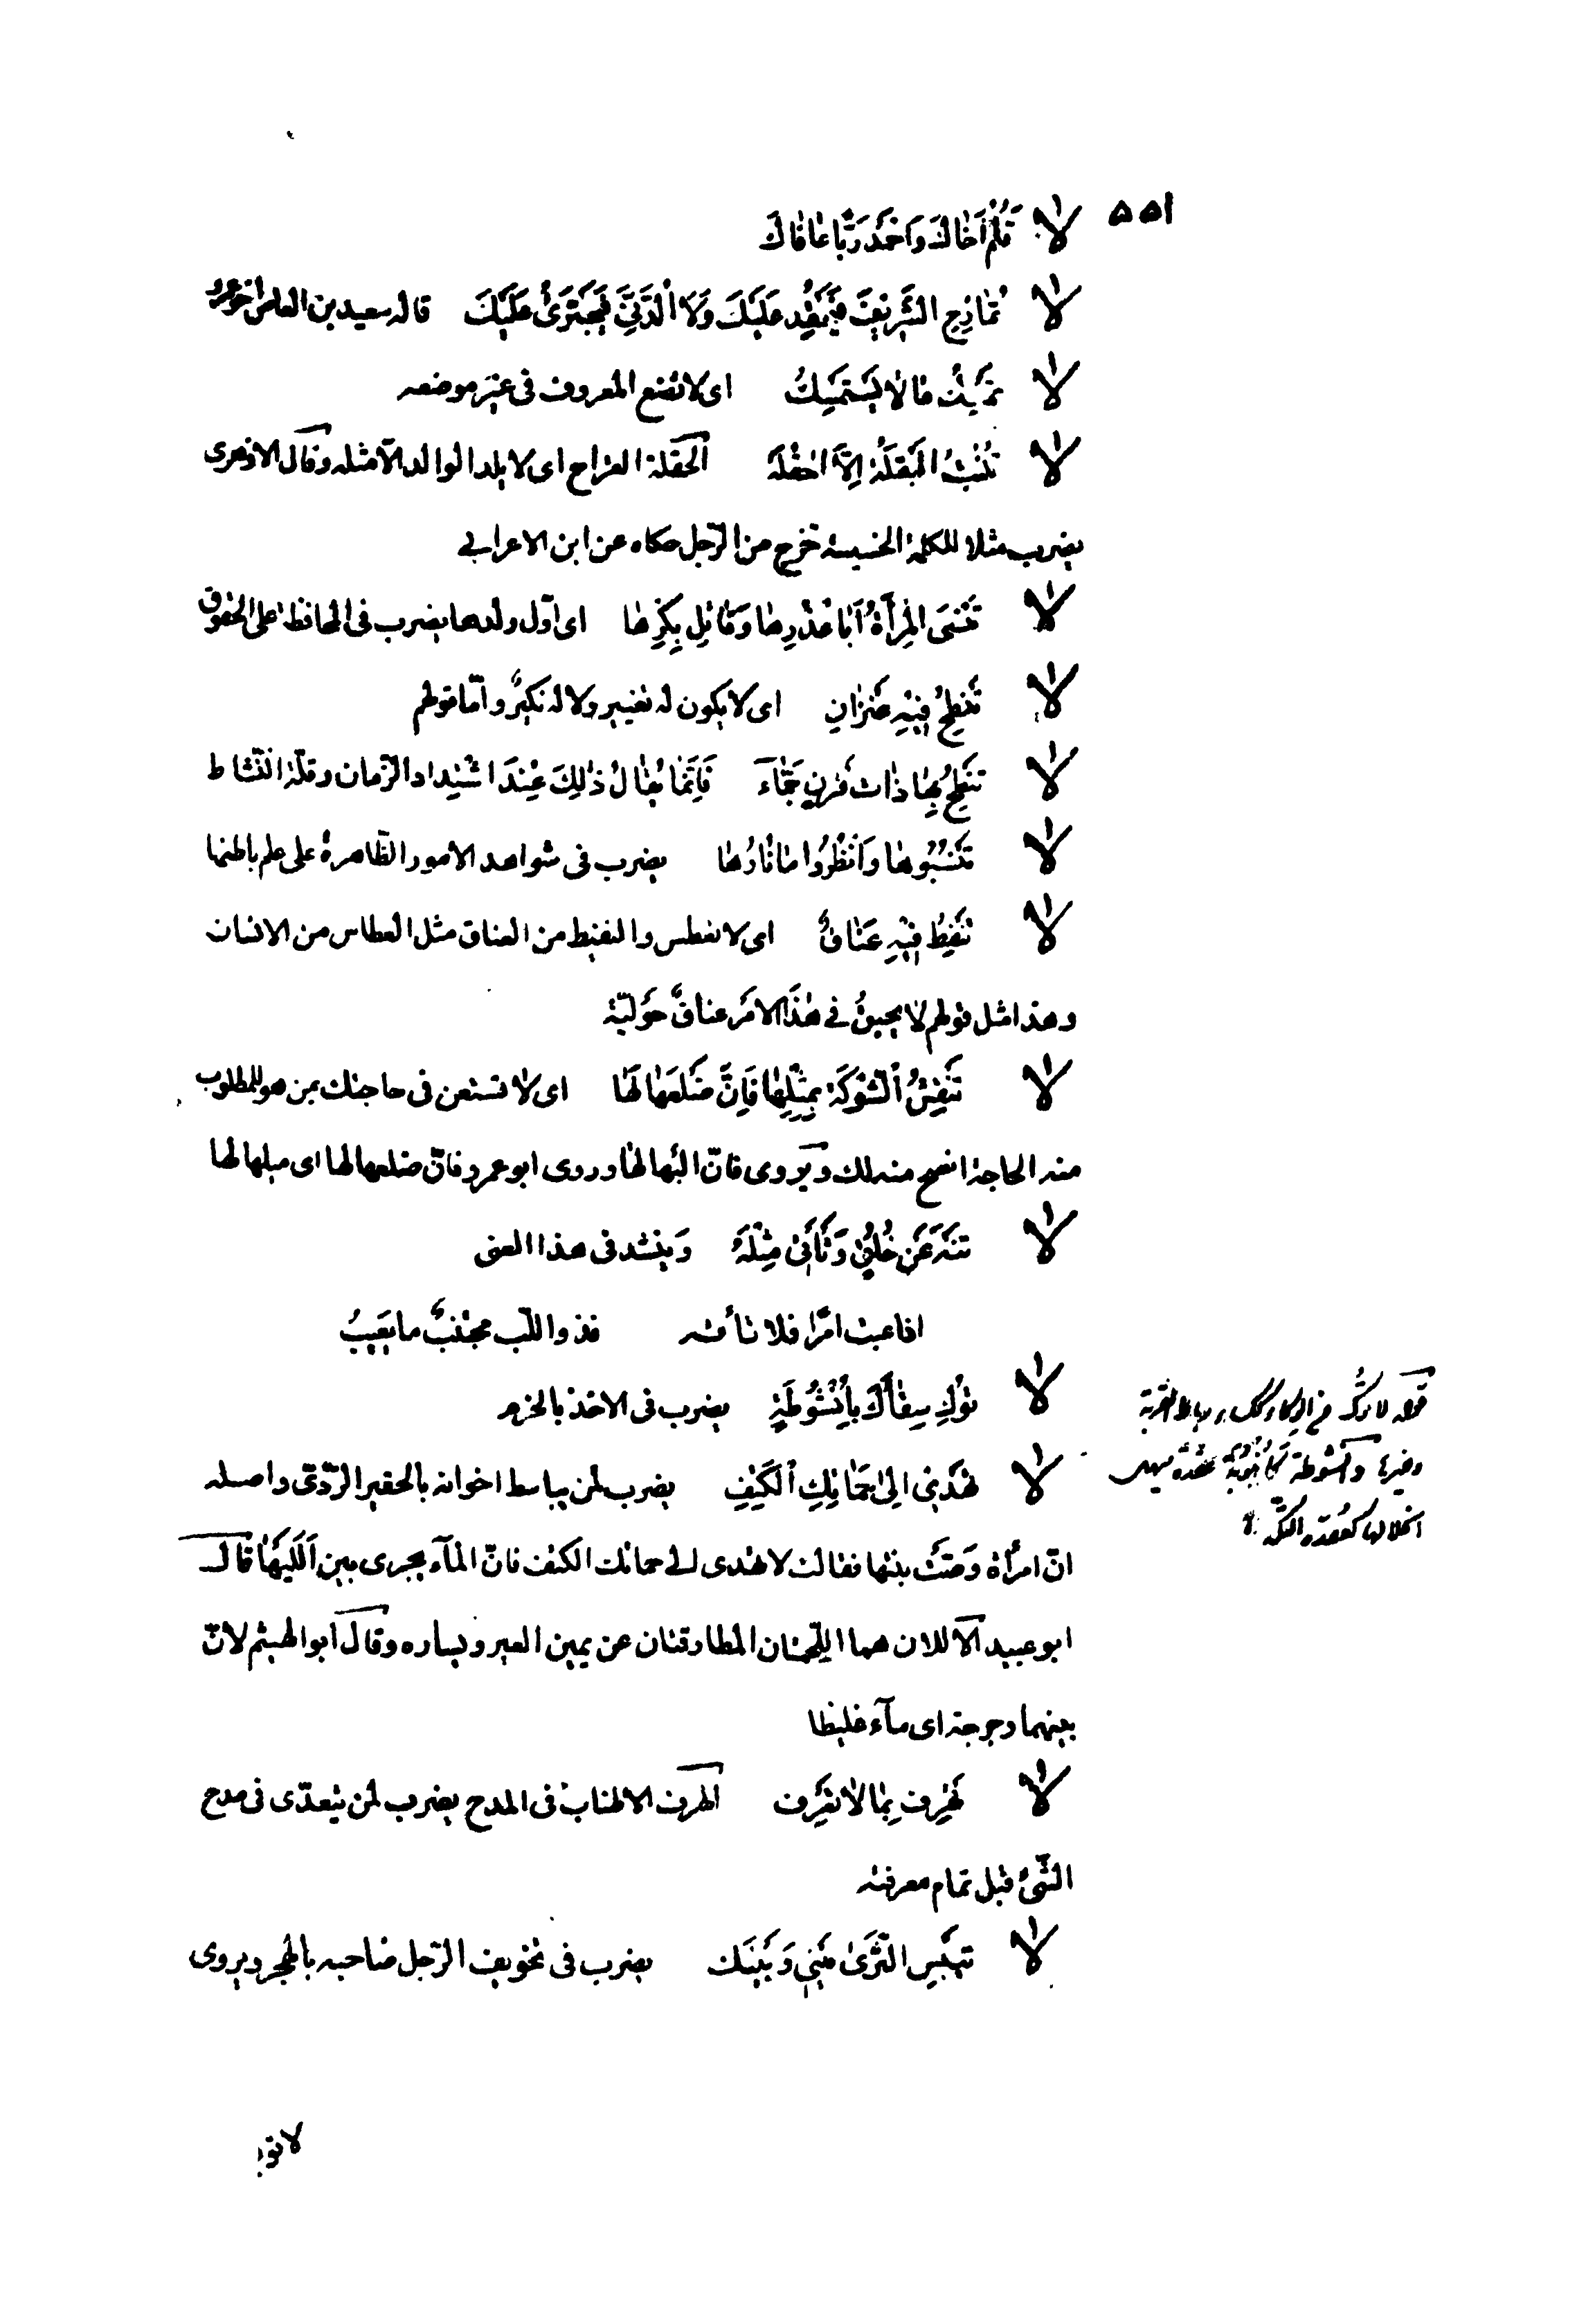 ٥٥١
لا تَلُمْ أَخَاكَ وَاحْمَدْ رَبًّا عَافَاكَ
لا تُمَازِحِ الشَّرِيفَ فَيَحْقِدَ عَلَيْكَ وَلَا الدَّنِيَّ فَيَجْتَرِئَ عَلَيْكَ قاله سعيد بن العاص اخو عمرو
لا تُمْسِكْ مَا لَا يَسْتَمْسِكُ اى لا تضع المعروف فى غير موضعه
لا تُنْبِتُ الْبَقْلَةَ اِلَّا الْحَقْلَةُ الحقلة القراح اى لا يلد الوالد الّا مثله وقال الازهرى
يضرب مثلا للكلمة الخسيسة تخرج من الرّجل حكاه عن ابن الاعرابى
لا تَنْسَى الْمَرْأَةُ أَبَا عُذْرِهَا وَقَاتِلَ بِكْرِهَا اى اوّل ولدها يضرب فى المحافظة على الحقوق
لا تَنْطِحُ فِيْهِ عَنْزَانِ اى لا يكون له تغيير ولا له نكيرٌ وامّا قولهم
لا تَنْطِحُ بِهَا ذَاتُ قَرْنٍ جَمَّآءَ فَاِنَّمَا يُقَالُ ذٰلِكَ عِنْدَ اشْتِداد الزّمان وقلّة النّشاط
لا تَنْسُبُوهَا وَانْظُرُوا مَا نَارُهَا يضرب فى شواهد الامور الظّاهرة على علم باطنها
لا تَنْفِطُ فِيْهِ عَنَاقٌ اى لا تعطس والنفيط من العناق مثل العطاس من الانسان
وهذا مثل قولهم لا يحبق فى هذا الامر عناقٌ حَوْليّة
لا تَنْقُشُ الشَّوْكَةَ بِمِثْلِهَا فَاِنَّ ضَلْعَهَا لَهَا اى لا تستعن فى حاجتك بمن هو للمطلوب
منه الحاجة انصح منه لك ويروى فانّ البها لها وروى ابو عمرو فانّ ضلعها لها اى ميلها لها
لا تَنْهَ عَنْ خُلُقٍ وَتَأْتِىَ مِثْلَهُ وينشد فى هذا المعنى
اذا عبت امرًا فلا تأته فذو اللّب مجتنبٌ ما يَعِيبُ
لا تُوْكِ سِقَاءَكَ بِأُنْشُوطَةٍ يضرب فى الاخذ بالحزم
لا تُهْدِى اِلَى حَمَاتِكِ الْكَتِفَ يضرب لمن يباسط اخوانه بالحقير الرّدىّ واصله
انّ امرأة وَصَّتْ بنتها فقالت لا تهدى الى حماتك الكتف فانّ المآء يجرى بين اَلَلَيْهَا قال
ابو عبيد الآللان هما اللّحمتان المطارقتان عن يمين العير ويساره وقال ابو الهيثم لانّ
بينهما رجرجة اى مآء غليظا
لا تَهْرِف بِمَا لَا تَعْرِف الهرف الاطناب فى المدح يضرب لمن يتعدّى فى مدح
الشّئ قبل تمام معرفته
لا تُيَبِّسِ الثَّرَى بَيْنِى وَبَيْنَك يضرب فى تخويف الرّجل صاحبه بالهجر ويروى
قوله لا توك من الوكاء رباط القربة
وغيرها والانشوطة كأُنْبُوبَة عقدة يسهل
انحلالها كعقدة التكّة
لا تو